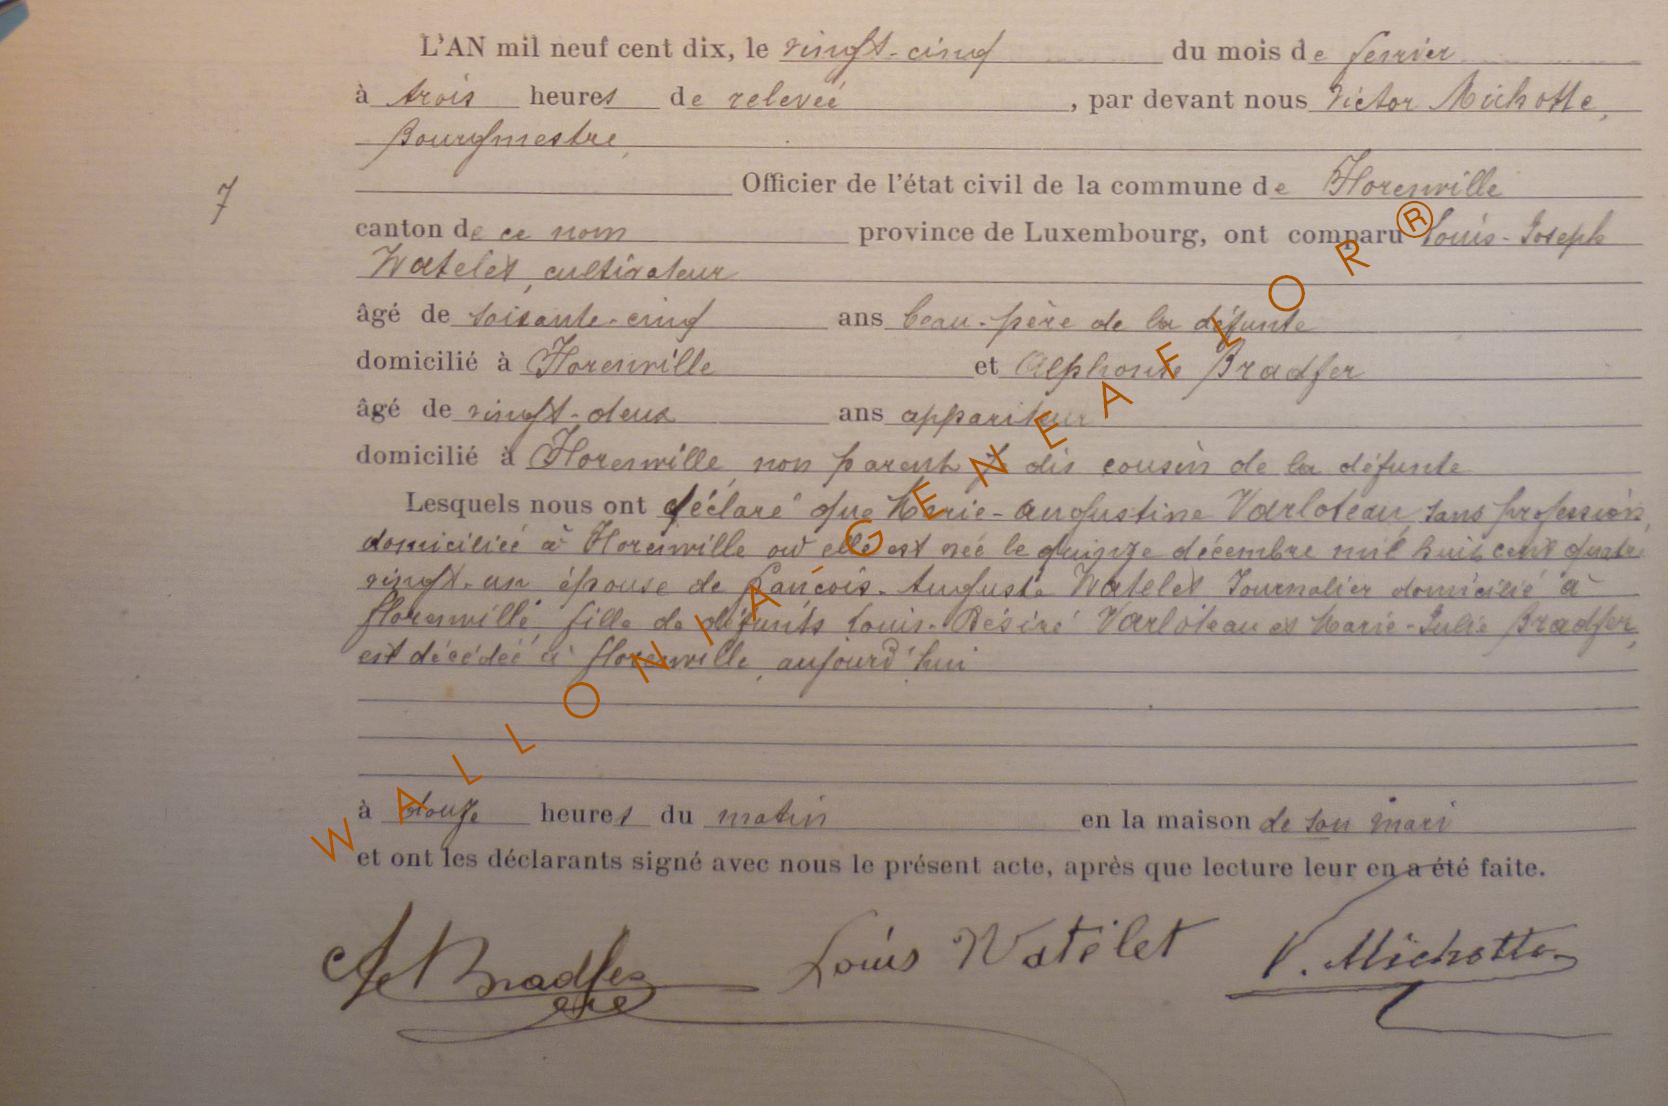 L'AN mil neuf cent dix, le vingt-cinq du mois de février
à trois heures de relevée, par devant nous Victor Michotte,
Bourgmestre,
7
Officier de l'état civil de la commune de Florenville
canton de ce nom province de Luxembourg, ont comparu Louis-Joseph
Watelet, cultivateur
âgé de soixante-cinq ans beau-père de la défunte
domicilié à Florenville et Alphonse Bradfer
âgé de vingt-deux ans appariteur
domicilié à Florenville, non parent dis cousin de la défunte
Lesquels nous ont déclaré que Marie-Augustine Varloteau, sans profession,
domiciliée à Florenville où elle est née le quinze décembre mil huit cent quatre
vingt-un épouse de François-Auguste Watelet Journalier domicilié à
Florenville fille de défunts Louis-Désiré Varloteau et Marie-Julie Bradfer,
est décédée à Florenville, aujourd'hui
à douze heures du matin en la maison de son mari
et ont les déclarants signé avec nous le présent acte, après que lecture leur en a été faite.
Bradfer Louis Watelet V. Michotte
WALLONIA GENEAFLOR®